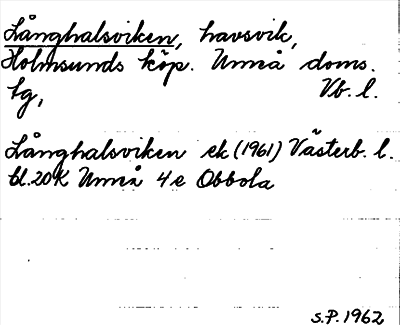 Långhalsviken, havsvik,
Holmsunds köp. Umeå doms.
lg, Vb. l.
Långhalsviken ek (1961) Västerb. l.
bl. 20K Umeå 4e Obbola
S.P. 1962